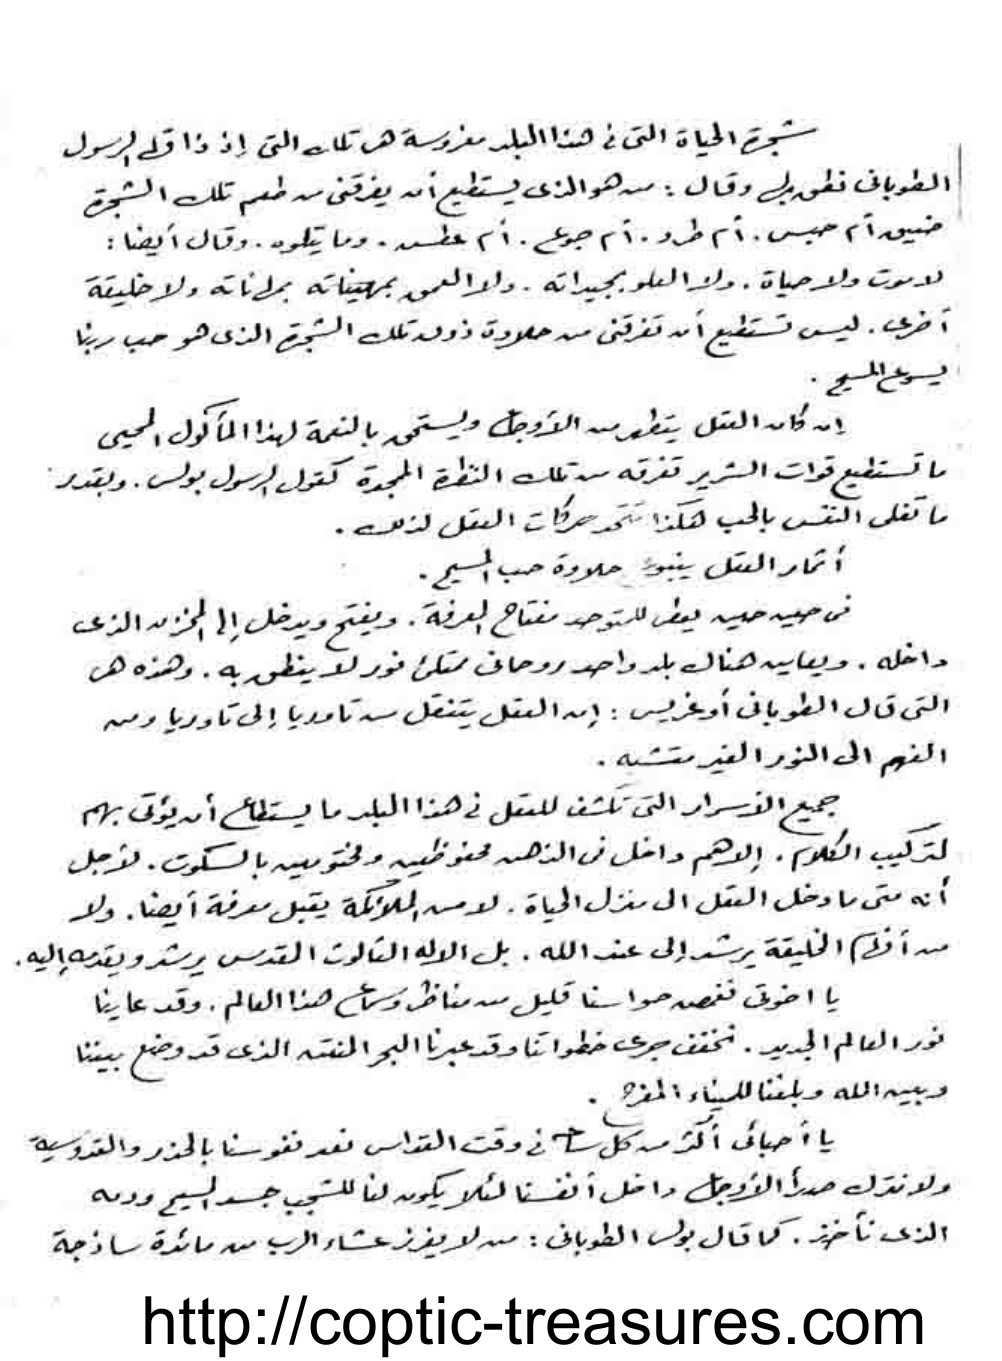 شجرة الحياة التى فى هذا البلد مغروسة هى تلك التى إذ ذاقها الرسول
الطوبانى نطق بها وقال : من هو الذى يستطيع أن يفرقنى من طعم تلك الشجرة
ضيق أم حبس . أم طرد . أم جوع . أم عطش . وما يتلوه . وقال أيضا :
لا موت ولا حياة . ولا العلو بجيداته . ولا العمق ولا خليقة
أخرى . ليس تستطيع أن تفرقنى من حلاوة ذوق تلك الشجرة الذى هو حب ربنا
يسوع المسيح .
إن كان العقل يتطهر من الأوجاع ويستحق بالنعمة لهذا المأكول المحيى
ما تستطيع قوات الشرير تفرقه من تلك النظرة الممجدة كقول الرسول بولس . وبقدر
ما تغلى النفس بالحب هكذا حركات العقل لذلك .
أثمار العقل ينبوع حلاوة حب المسيح .
فى حين حين يعطى للمتوحد مفتاح المعرفة . ويفتح ويدخل إلى المخزن الذى
داخله . ويعاين هناك بلد واحد روحانى ممتلئ نور لا ينطق به . وهذه هى
التى قال الطوبانى أوغريس : إن العقل يتنقل من تاوريا إلى تاوريا ومن
الفهم الى النور الغير متشبه .
جميع الأسرار التى تكشف للعقل فى هذا البلد ما يستطاع أن يؤتى بهم
لتركيب الكلام . إلا هم داخل فى الذهن محفوظين ومختومين بالسكوت . لأجل
أنه متى ما دخل العقل الى منزل الحياة . لا من الملائكة يقبل معرفة أيضا . ولا
من أفهام الخليقة يرشد إلى عند الله . بل الاله الثالوث القدس يرشد ويقدمه إليه .
يا اخوتى نغمض حواسنا قليل من مناظر وسماع هذا العالم . وقد عاينا
نور العالم الجديد . نخفف جرى خطواتنا وقد عبرنا البحر المنتن الذى قد وضع بيننا
وبين الله وبلغنا للميناء المفرح .
يا أحبائى أكثر من كل ساعة فى وقت القداس نعد نفوسنا بالحذر والقدوسية
ولا نترك صدأ الأوجاع داخل أنفسنا لئلا يكون لنا للشجب جسد المسيح ودمه
الذى نأخذ . كما قال بولس الطوبانى : من لا يفرز عشاء الرب من مائدة ساذجة
http://coptic-treasures.com